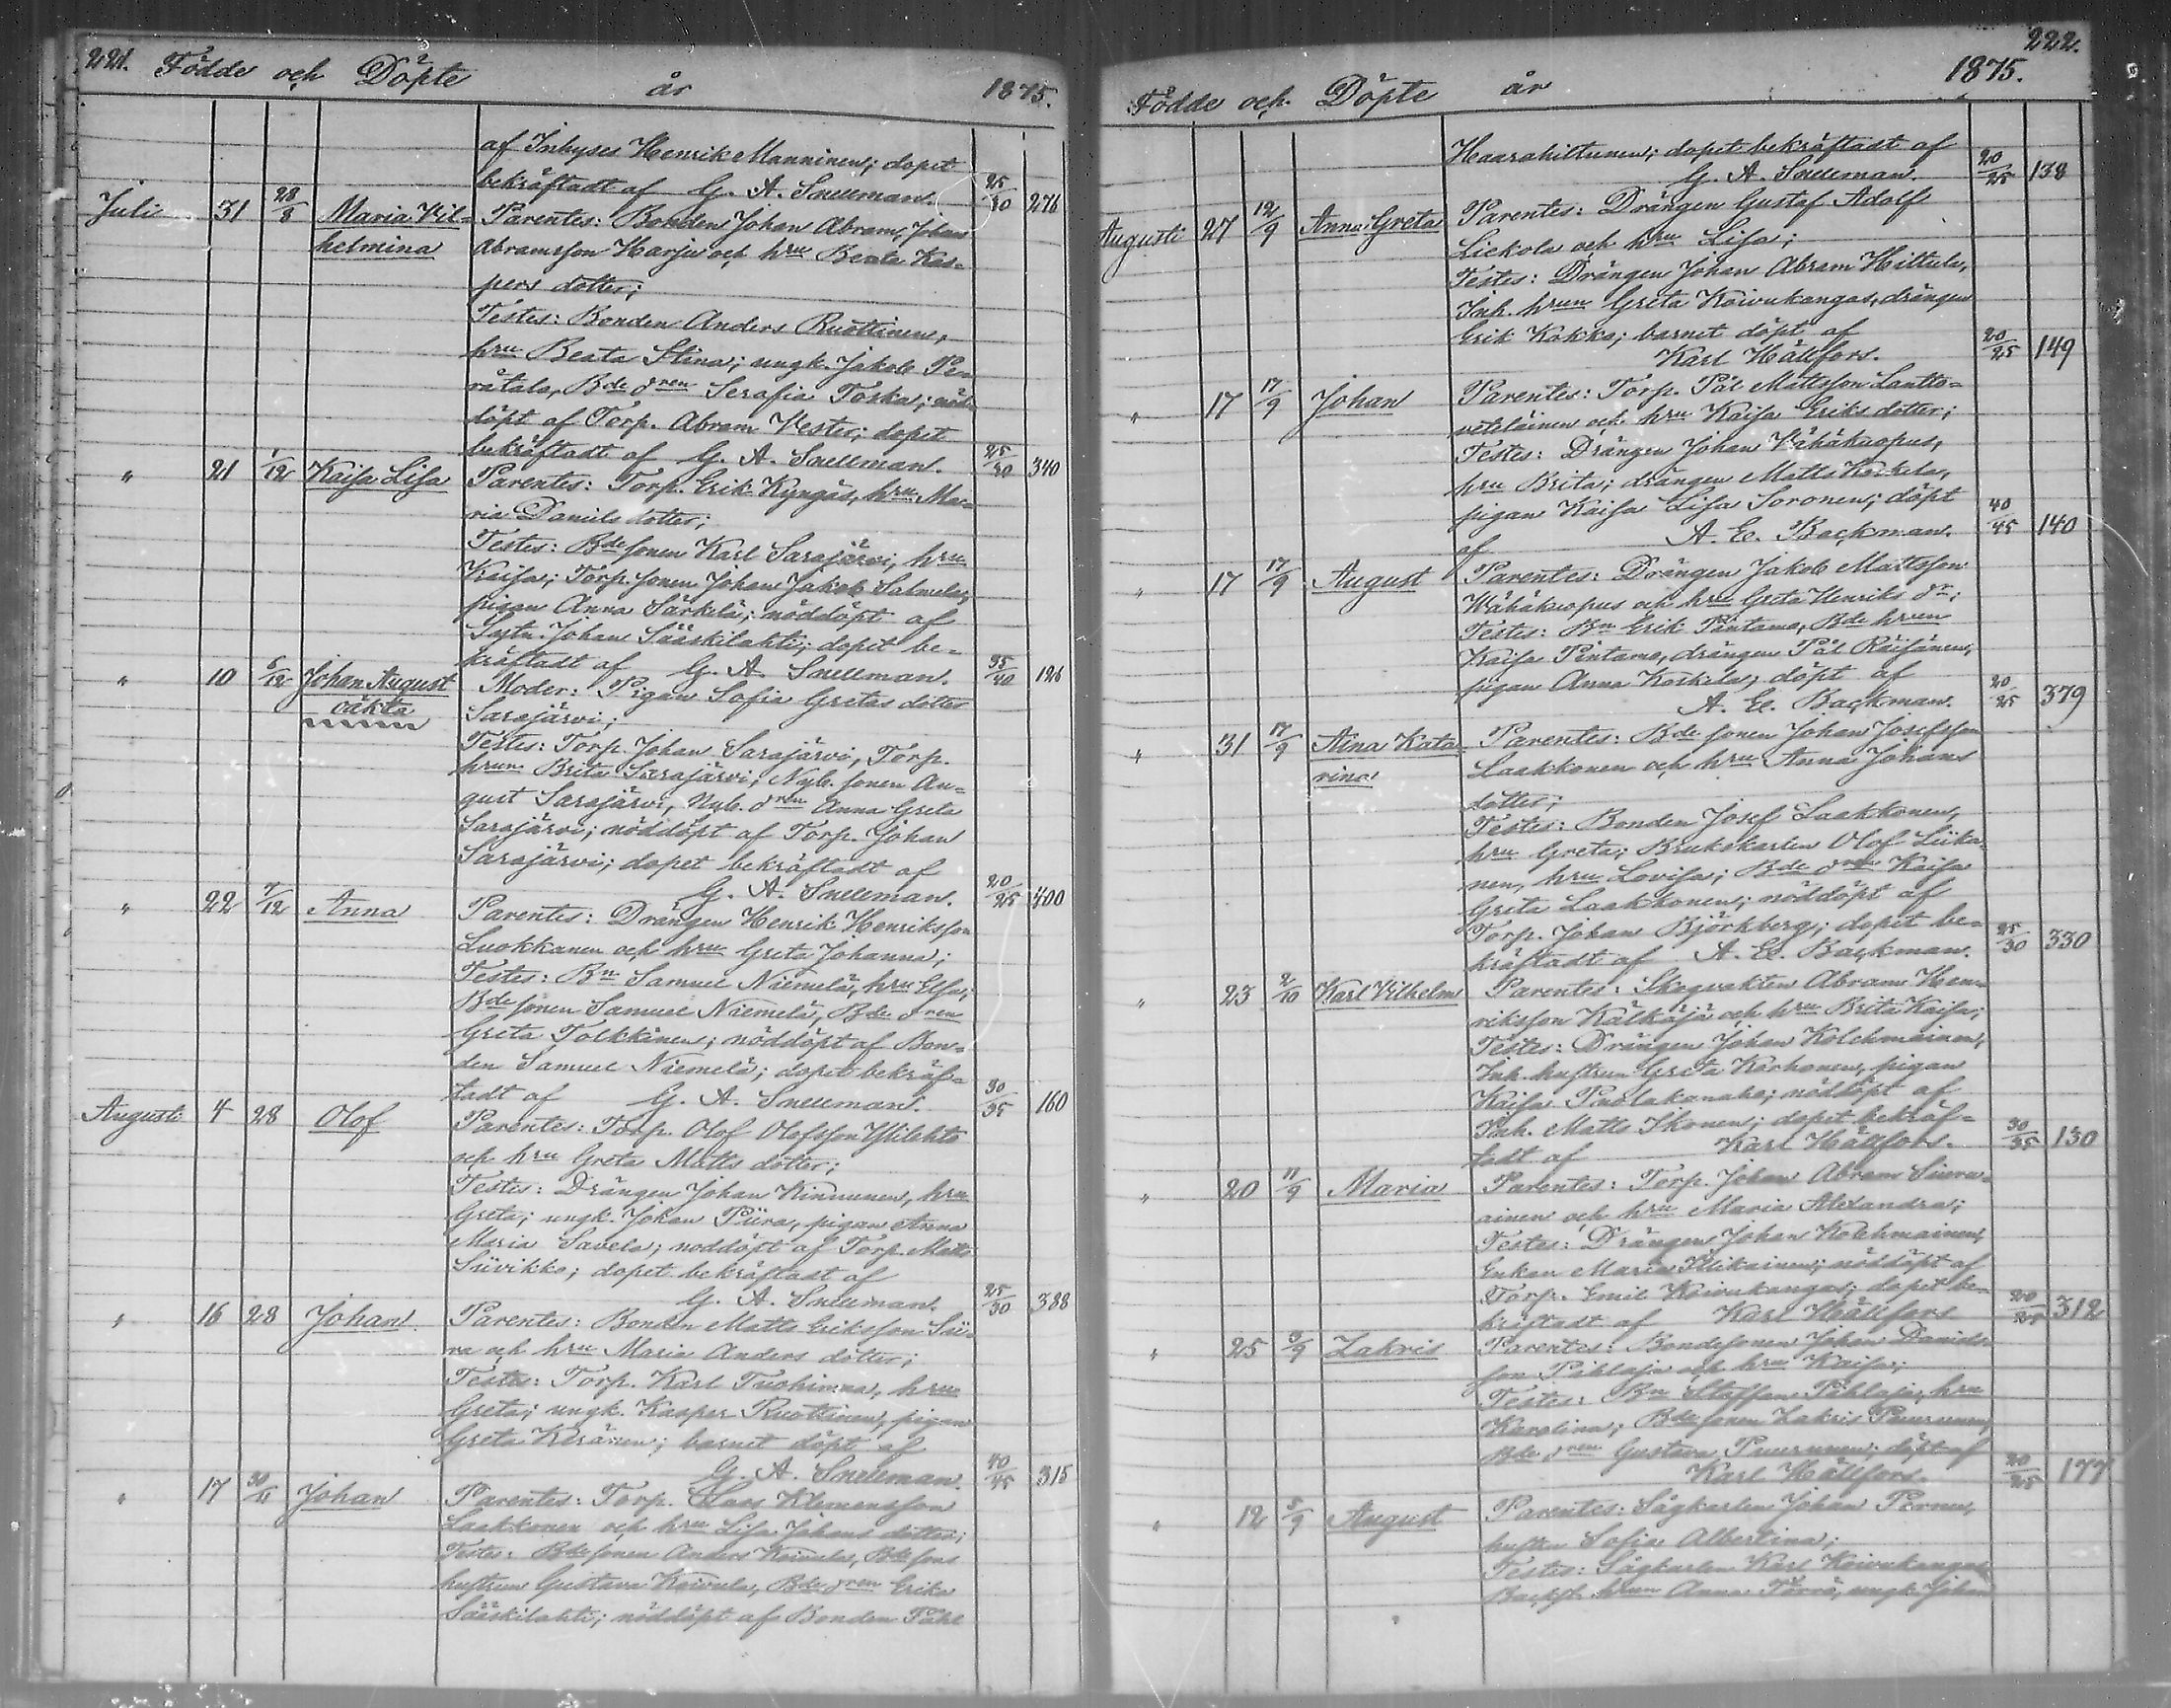 221. Födde och Döpte år 1875.
af Inhyses Henrik Manninen; dopet
bekräftadt af G. A. Snellman. 25/30 276
Juli 31 28/8 Maria Vil= Parentes: Bonden Johan Abram, Johan
helmina Abramsson Harju och hru Beata Kas=
pers dotter;
Testes: Bonden Anders Ruottinen,
hru Beata Stina; ungk. Jakob Pe=
rätalo, Bde dren Serafia Toska; nöd=
döpt af Torp. Abram Vester; dopet
bekräftadt af G. A. Snellman. 25/30 340
" 21 1/12 Kaisa Lisa Parentes: Torp. Erik Kyngäs, hru Ma=
ria Daniels dotter;
Testes: Bde sonen Karl Sarajärvi, hru
Kaisa; Torp. sonen Johan Jakob Salmela,
pigan Anna Särkelä; nöddöpt af
Sytn. Johan Sääskilahti; dopet be=
kräftadt af G. A. Snellman. 35/40 126
" 10 5/12 Johan August Moder: Pigan Sofia Gretas dotter
oäkta Sarajärvi;
Testes: Torp. Johan Sarajärvi, Torp.
hrun Brita Sarajärvi; Nyb. sonen Au=
gust Sarajärvi, Nyb. dren Anna Greta
Sarajärvi; nöddöpt af Torp. Johan
Sarajärvi; dopet bekräftadt af
G. A. Snellman. 20/25 400
" 22 7/12 Anna Parentes: Drängen Henrik Henriksson
Luokkanen och hru Greta Johanna;
Testes: Bn Samuel Niemelä, hru Elsa;
Bde sonen Samuel Niemelä, Bde dren
Greta Tolkkinen; nöddöpt af Bon=
den Samuel Niemelä; dopet bekräf=
tadt af G. A. Snellman. 30/35 160
Augusti 4 28 Olof Parentes: Torp. Olof Olofsson Ylilehto
och hru Greta Matts dotter;
Testes: Drängen Johan Kinnunen, hru
Greta; ungk. Johan Piira, pigan Anna
Maria Savela; nöddöpt af Torp. Matts
Siivikko; dopet bekräftadt af
G. A. Snellman. 25/30 388
" 16 28 Johan Parentes: Bonden Matts Eriksson Sii=
ra och hru Maria Anders dotter;
Testes: Torp. Karl Tuohimaa, hru
Greta; ungk. Kasper Ruottinen, pigan
Greta Keränen; barnet döpt af
G. A. Snellman. 40/45 315
" 17 30/11 Johan Parentes: Torp. Claas Klemensson
Laakkonen och hru Lisa Johans dotter;
Testes: Bde sonen Anders Koivula, Bde sons
hustrun Gustava Koivula, Bde dren Erika
Sääskilahti; nöddöpt af Bonden Påhl
222.
Födde och Döpte år 1875.
Haarahiltunen; dopet bekräftadt af
G. A. Snellman. 20/25 138
Augusti 27 12/9 Anna Greta Parentes: Drängen Gustaf Adolf
Liekola och hru Lisa;
Testes: Drängen Johan Abram Hiltula,
Inh. hrun Greta Koivukangas, drängen
Erik Kokko; barnet döpt af
Karl Hällfors. 20/25 149
" 17 17/9 Johan Parentes: Torp. Pål Mattsson Lantto=
veteläinen och hru Kaisa Eriks dotter;
Testes: Drängen Johan Vähäkuopus,
hru Brita; drängen Matts Koskela,
pigan Kaisa Lisa Soronen; döpt
af A. E. Backman. 40/45 140
" 17 17/9 August Parentes: Drängen Jakob Mattsson
Wähäkuopus och hru Greta Henriks dr;
Testes: Bn Erik Pintamo, Bde hrun
Kaisa Pintamo, drängen Pål Räisänen,
pigan Anna Koskela; döpt af
A. E. Backman. 20/25 379
" 31 17/9 Aina Kata= Parentes: Bde sonen Johan Josefsson
rina Laakkonen och hru Anna Johans
dotter;
Testes: Bonden Josef Laakkonen,
hru Greta; Brukskarlen Olof Liika=
nen, hru Lovisa; Bde dren Kaisa
Greta Laakkonen; nöddöpt af
Torp. Johan Björkberg; dopet be=
kräftadt af A. E. Backman. 25/30 330
" 23 2/10 Karl Vilhelm Parentes: Skogvakten Abram Hen=
riksson Kälkäjä och hru Brita Kaisa;
Testes: Drängen Johan Kolehmainen,
Inh. hustrun Greta Korhonen, pigan
Kaisa Puolakanaho; nöddöpt af
Inh. Matts Ikonen; dopet bekräf=
tadt af Karl Hällfors. 30/35 130
" 20 11/9 Maria Parentes: Torp. Johan Abram Siira=
ainen och hru Maria Alexandra;
Testes: Drängen Johan Kolehmainen,
Enkan Maria Illikainen; nöddöpt af
Torp. Emil Koivukangas; dopet be=
kräftadt af Karl Hällfors 20/25 312
" 25 5/9 Zakris Parentes: Bondesonen Johan Daniels=
son Pihlaja och hru Kaisa;
Testes: Bn Staffan Pihlaja, hru
Karolina; Bde sonen Zakris Puurunen,
Bde dren Gustava Puurunen; döpt af
Karl Hällfors. 20/25 177
" 12 5/9 August Parentes: Sågkarlen Johan Pernu,
hustru Sofia Albertina;
Testes: Sågkarlen Karl Koivukangas,
Backst. hrun Anna Törrö, ungk. Johan